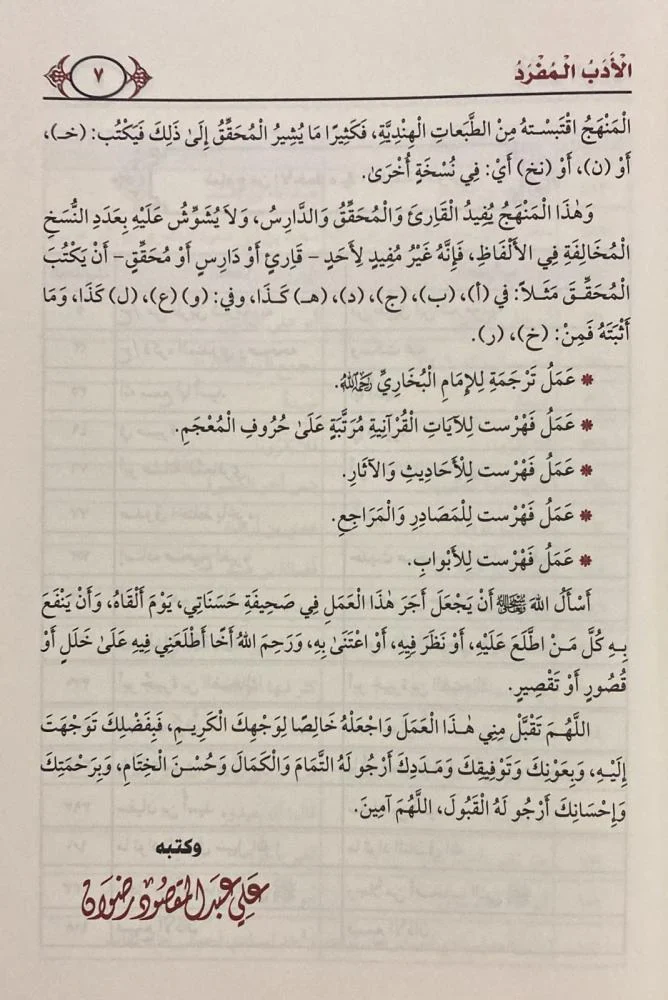 الْأَدَبُ الْمُفْرَدُ
٧
الْمَنْهَجُ اقْتَبَسْتهُ مِنْ الطَّبَعاتِ الْهِنْدِيَّةِ، فَكَثِيرًا مَا يُشِيرُ الْمُحَقِّقُ إِلَىٰ ذَلِكَ فَيَكْتُب: (خـ)،
أَوْ (ن)، أَوْ (نخ) أَيْ: فِي نُسْخَةٍ أُخْرَىٰ.
وَهَٰذَا الْمَنْهَجُ يُفِيدُ الْقَارِئَ وَالْمُحَقِّقُ وَالدَّارِسُ، وَلَا يُشَوِّشُ عَلَيْهِ بِعَدَدِ النُّسَخِ
الْمُخَالِفَةِ فِي الْأَلْفَاظِ، فَإِنَّهُ غَيْرُ مُفِيدٍ لِأَحَدٍ - قَارِئٍ أَوْ دَارِسٍ أَوْ مُحَقِّقٍ - أَنْ يَكْتُبَ
الْمُحَقِّقَ مَثَلاً: فِي (أ)، (ب)، (ج)، (د)، (هـ) كَذَا، وَفي: (و) (ع)، (ل) كَذَا، وَمَا
أَثْبَتَهُ فَمِنْ: (خ)، (ر).
* عَمَلُ تَرْجَمَةٍ لِلإِمَامِ الْبُخَارِيِّ رَحِمَهُ اللهُ.
* عَمَلُ فَهْرَست لِلآيَاتِ الْقُرْآنِيةِ مُرَتَّبَةٍ عَلَىٰ حُرُوفِ الْمُعْجَمِ.
* عَمَلُ فَهْرَست لِلْأَحَادِيثِ وَالآثَارِ.
* عَمَلُ فَهْرَست لِلْمَصَادِرِ وَالْمَرَاجِعِ.
* عَمَلُ فَهْرَست لِلأَبْوابِ.
أَسْأَلُ اللهَ ﷻ أَنْ يَجْعَلَ أَجَرَ هَٰذَا الْعَمَلِ فِي صَحِيفَةِ حَسَنَاتِي، يَوْمَ أَلْقَاهُ، وَأَنْ يَنْفَعَ
بِهِ كُلَّ مَنْ اطَّلَعَ عَلَيْهِ، أَوْ نَظَرَ فِيهِ، أَوْ اعْتَنَىٰ بِهِ، وَرَحِمَ اللهُ أَخًا أَطْلَعَنِي فِيهِ عَلَىٰ خَلَلٍ أَوْ
قُصُورٍ أَوْ تَقْصِيرٍ.
اللَّهُمَّ تَقَبَّلْ مِنِي هَٰذَا الْعَمَلَ وَاجْعَلْهُ خَالِصًا لِوَجْهِكَ الْكَرِيمِ، فَبِفَضْلِكَ تَوَجْهَتَ
إِلَيْهِ، وَبِعَوْنِكَ وَتَوْفِيقِكَ وَمَدَدِكَ أَرْجُو لَهُ التَّمَامَ وَالْكَمَالَ وَحُسْنَ الْخِتَامِ، وَبِرَحْمَتِكَ
وَإِحْسَانِكَ أَرْجُو لَهُ الْقَبُولَ، اللَّهُمَ آمِينَ.
وكتبه
علي عبد المقصود رضوان